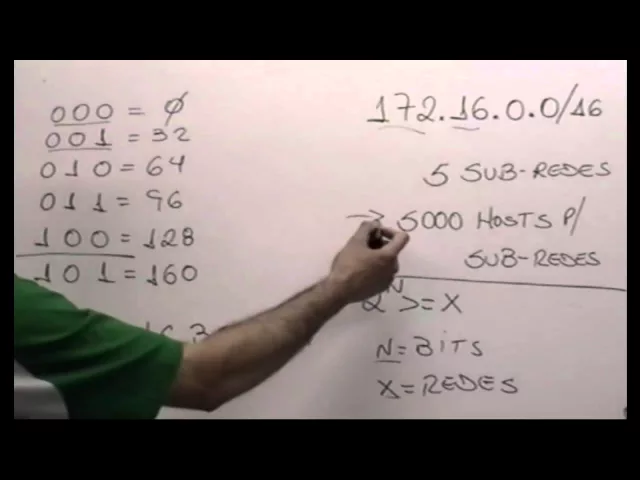 000 = 0
001 = 32
010 = 64
011 = 96
100 = 128
101 = 160
172.16.0.0/16
5 SUB-REDES
→ 5000 HOSTS P/
SUB-REDES
2^N >= X
N = BITS
X = REDES